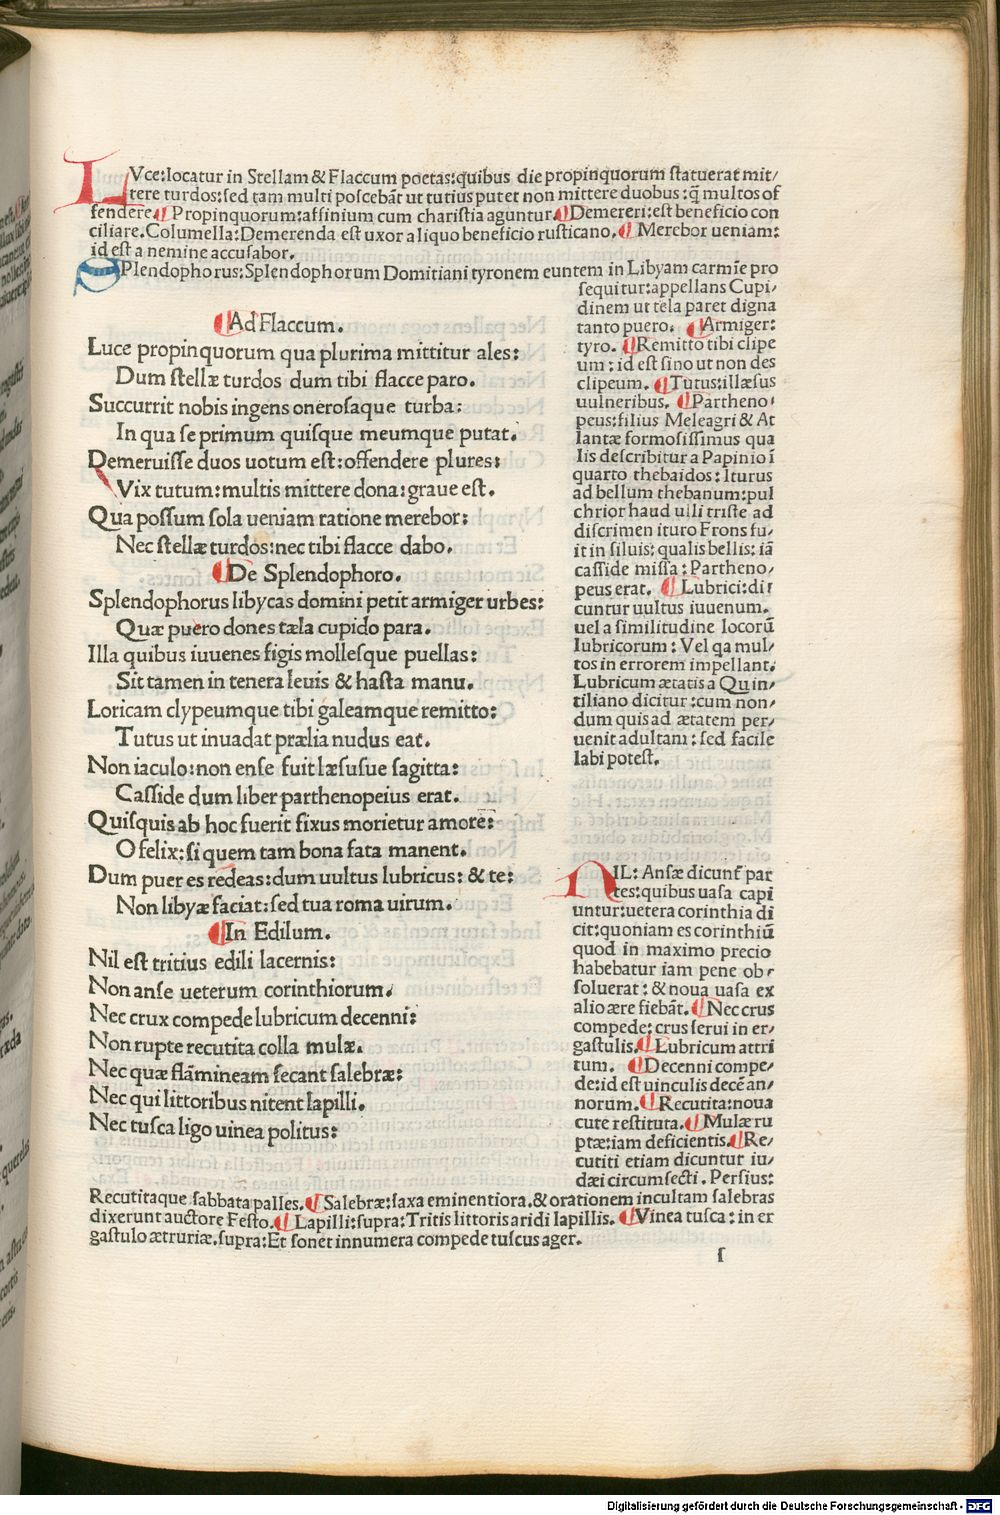 LVce:locatur in Stellam & Flaccum poetas:quibus die propinquorum statuerat mit/
tere turdos:sed tam multi poscebāt ut tutius putet non mittere duobus:q̄ multos of
fendere. Propinquorum:affinium cum charistia aguntur. Demereri:est beneficio con
ciliare. Columella:Demerenda est uxor aliquo beneficio rusticano. Merebor ueniam:
id est a nemine accusabor.
SPlendophorus:Splendophorum Domitiani tyronem euntem in Libyam carmīe pro
sequitur:appellans Cupi/
dinem ut tela paret digna
tanto puero. Armiger:
tyro. Remitto tibi clipe
um: id est sino ut non des
clipeum. Tutus:illæsus
uulneribus. Partheno/
peus:filius Meleagri & At
lantæ formosissimus qua
lis describitur a Papinio ī
quarto thebaidos: Iturus
ad bellum thebanum:pul
chrior haud ulli triste ad
discrimen ituro Frons fu/
it in siluis: qualis bellis: iā
casside missa: Partheno/
peus erat. Lubrici:di/
cuntur uultus iuuenum.
uel a similitudine locorū
lubricorum: Vel qa mul/
tos in errorem impellant.
Lubricum ætatis a Quin/
tiliano dicitur:cum non/
dum quis ad ætatem per/
uenit adultam: sed facile
labi potest.
Ad Flaccum.
Luce propinquorum qua plurima mittitur ales:
Dum stellæ turdos dum tibi flacce paro.
Succurrit nobis ingens onerosaque turba:
In qua se primum quisque meumque putat.
Demeruisse duos uotum est:offendere plures:
Vix tutum:multis mittere dona:graue est.
Qua possum sola ueniam ratione merebor:
Nec stellæ turdos:nec tibi flacce dabo.
De Splendophoro.
Splendophorus libycas domini petit armiger urbes:
Quæ puero dones tæla cupido para.
Illa quibus iuuenes figis mollesque puellas:
Sit tamen in tenera leuis & hasta manu.
Loricam clypeumque tibi galeamque remitto:
Tutus ut inuadat prælia nudus eat.
Non iaculo:non ense fuit læsusue sagitta:
Casside dum liber parthenopeius erat.
Quisquis ab hoc fuerit fixus morietur amore:
O felix:si quem tam bona fata manent.
Dum puer es redeas:dum uultus lubricus: & te:
Non libyæ faciat:sed tua roma uirum.
In Edilum.
Nil est tritius edili lacernis:
Non anse ueterum corinthiorum.
Nec crux compede lubricum decenni:
Non rupte recutita colla mulæ.
Nec quæ flāmineam secant salebræ:
Nec qui littoribus nitent lapilli.
Nec tusca ligo uinea politus:
NIL: Ansæ dicunt̄ par
tes:quibus uasa capi
untur:uetera corinthia di
cit:quoniam es corinthiū
quod in maximo precio
habebatur iam pene ob/
soluerat: & noua uasa ex
alio ære fiebāt. Nec crus
compede: crus serui in er/
gastulis. Lubricum attri
tum. Decenni compe/
de:id est uinculis decē an/
norum. Recutita:noua
cute restituta. Mulæ ru
ptæ:iam deficientis. Re/
cutiti etiam dicuntur iu/
dæi circumsecti. Persius:
Recutitaque sabbata palles. Salebræ:saxa eminentiora.& orationem incultam salebras
dixerunt auctore Festo. Lapilli:supra:Tritis littoris aridi lapillis. Vinea tusca: in er
gastulo ætruriæ.supra:Et sonet innumera compede tuscus ager.
f
Digitalisierung gefördert durch die Deutsche Forschungsgemeinschaft - DFG